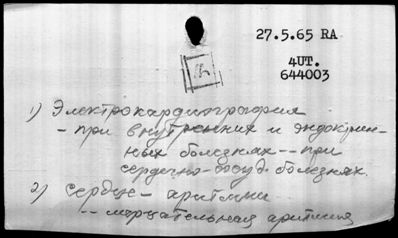 27.5.65 RA
4UT.
644003
1) Электрокардиография
- при внутренних и эндокрин-
ных болезнях -- при
сердечно-сосуд. болезнях.
2) Сердце - аритмии
-- мерцательная аритмия